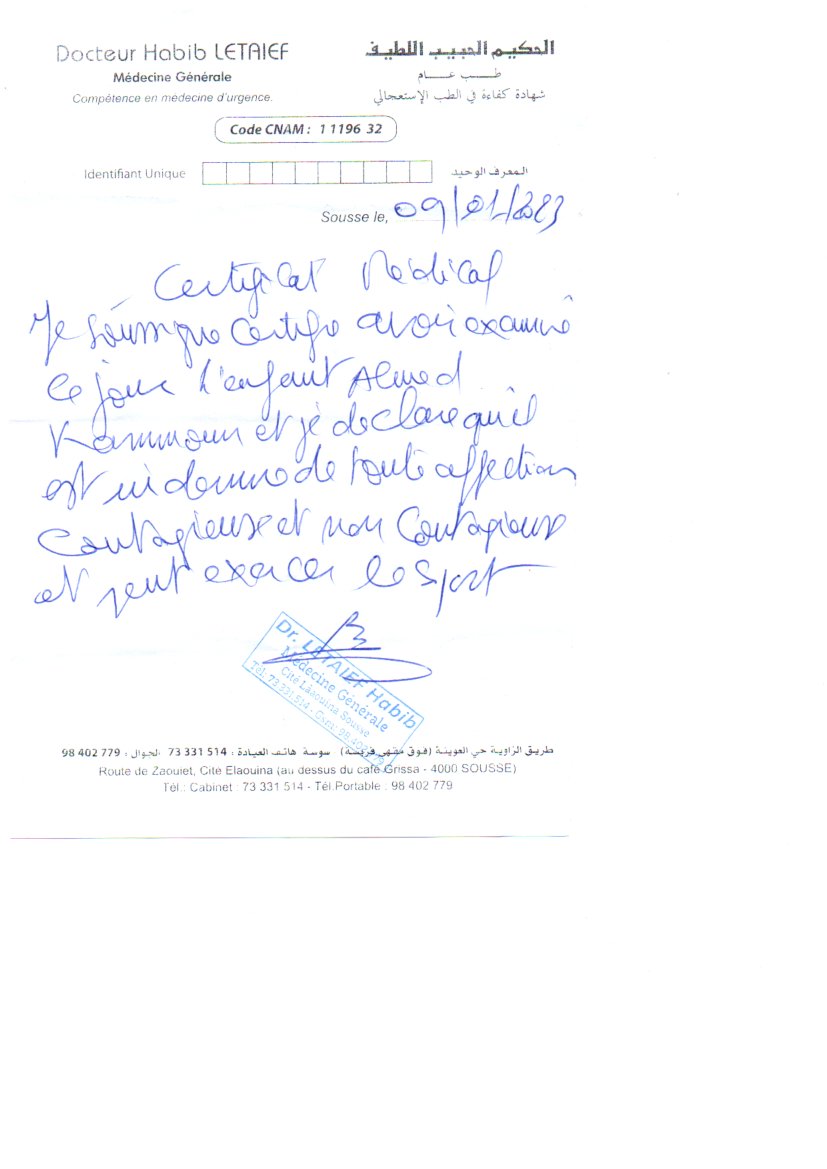 Docteur Habib LETAIEF
الحكيم الحبيب اللطيف
Médecine Générale
طب عام
Compétence en médecine d'urgence.
شهادة كفاءة في الطب الإستعجالي
Code CNAM : 1 1196 32
Identifiant Unique
المعرف الوحيد
Sousse le, 09/01/2023
Certificat Médical
Je soussigné Certifie avoir examiné
ce jour l'enfant Ahmed
Kammoun et je déclare qu'il
est indemne de toute affection
Contagieuse et non Contagieuse
et peut exercer le sport
Dr. LETAIEF Habib
Médecine Générale
Cité Laaouina Sousse
Tél. 73 331 514 - Gsm: 98 402 779
طريق الزاوية حي العوينة (فوق مقهى قريسة) سوسة هاتف العيادة : 514 331 73 الجوال : 779 402 98
Route de Zaouiet, Cité Elaouina (au dessus du café Grissa - 4000 SOUSSE)
Tél.: Cabinet : 73 331 514 - Tél.Portable : 98 402 779